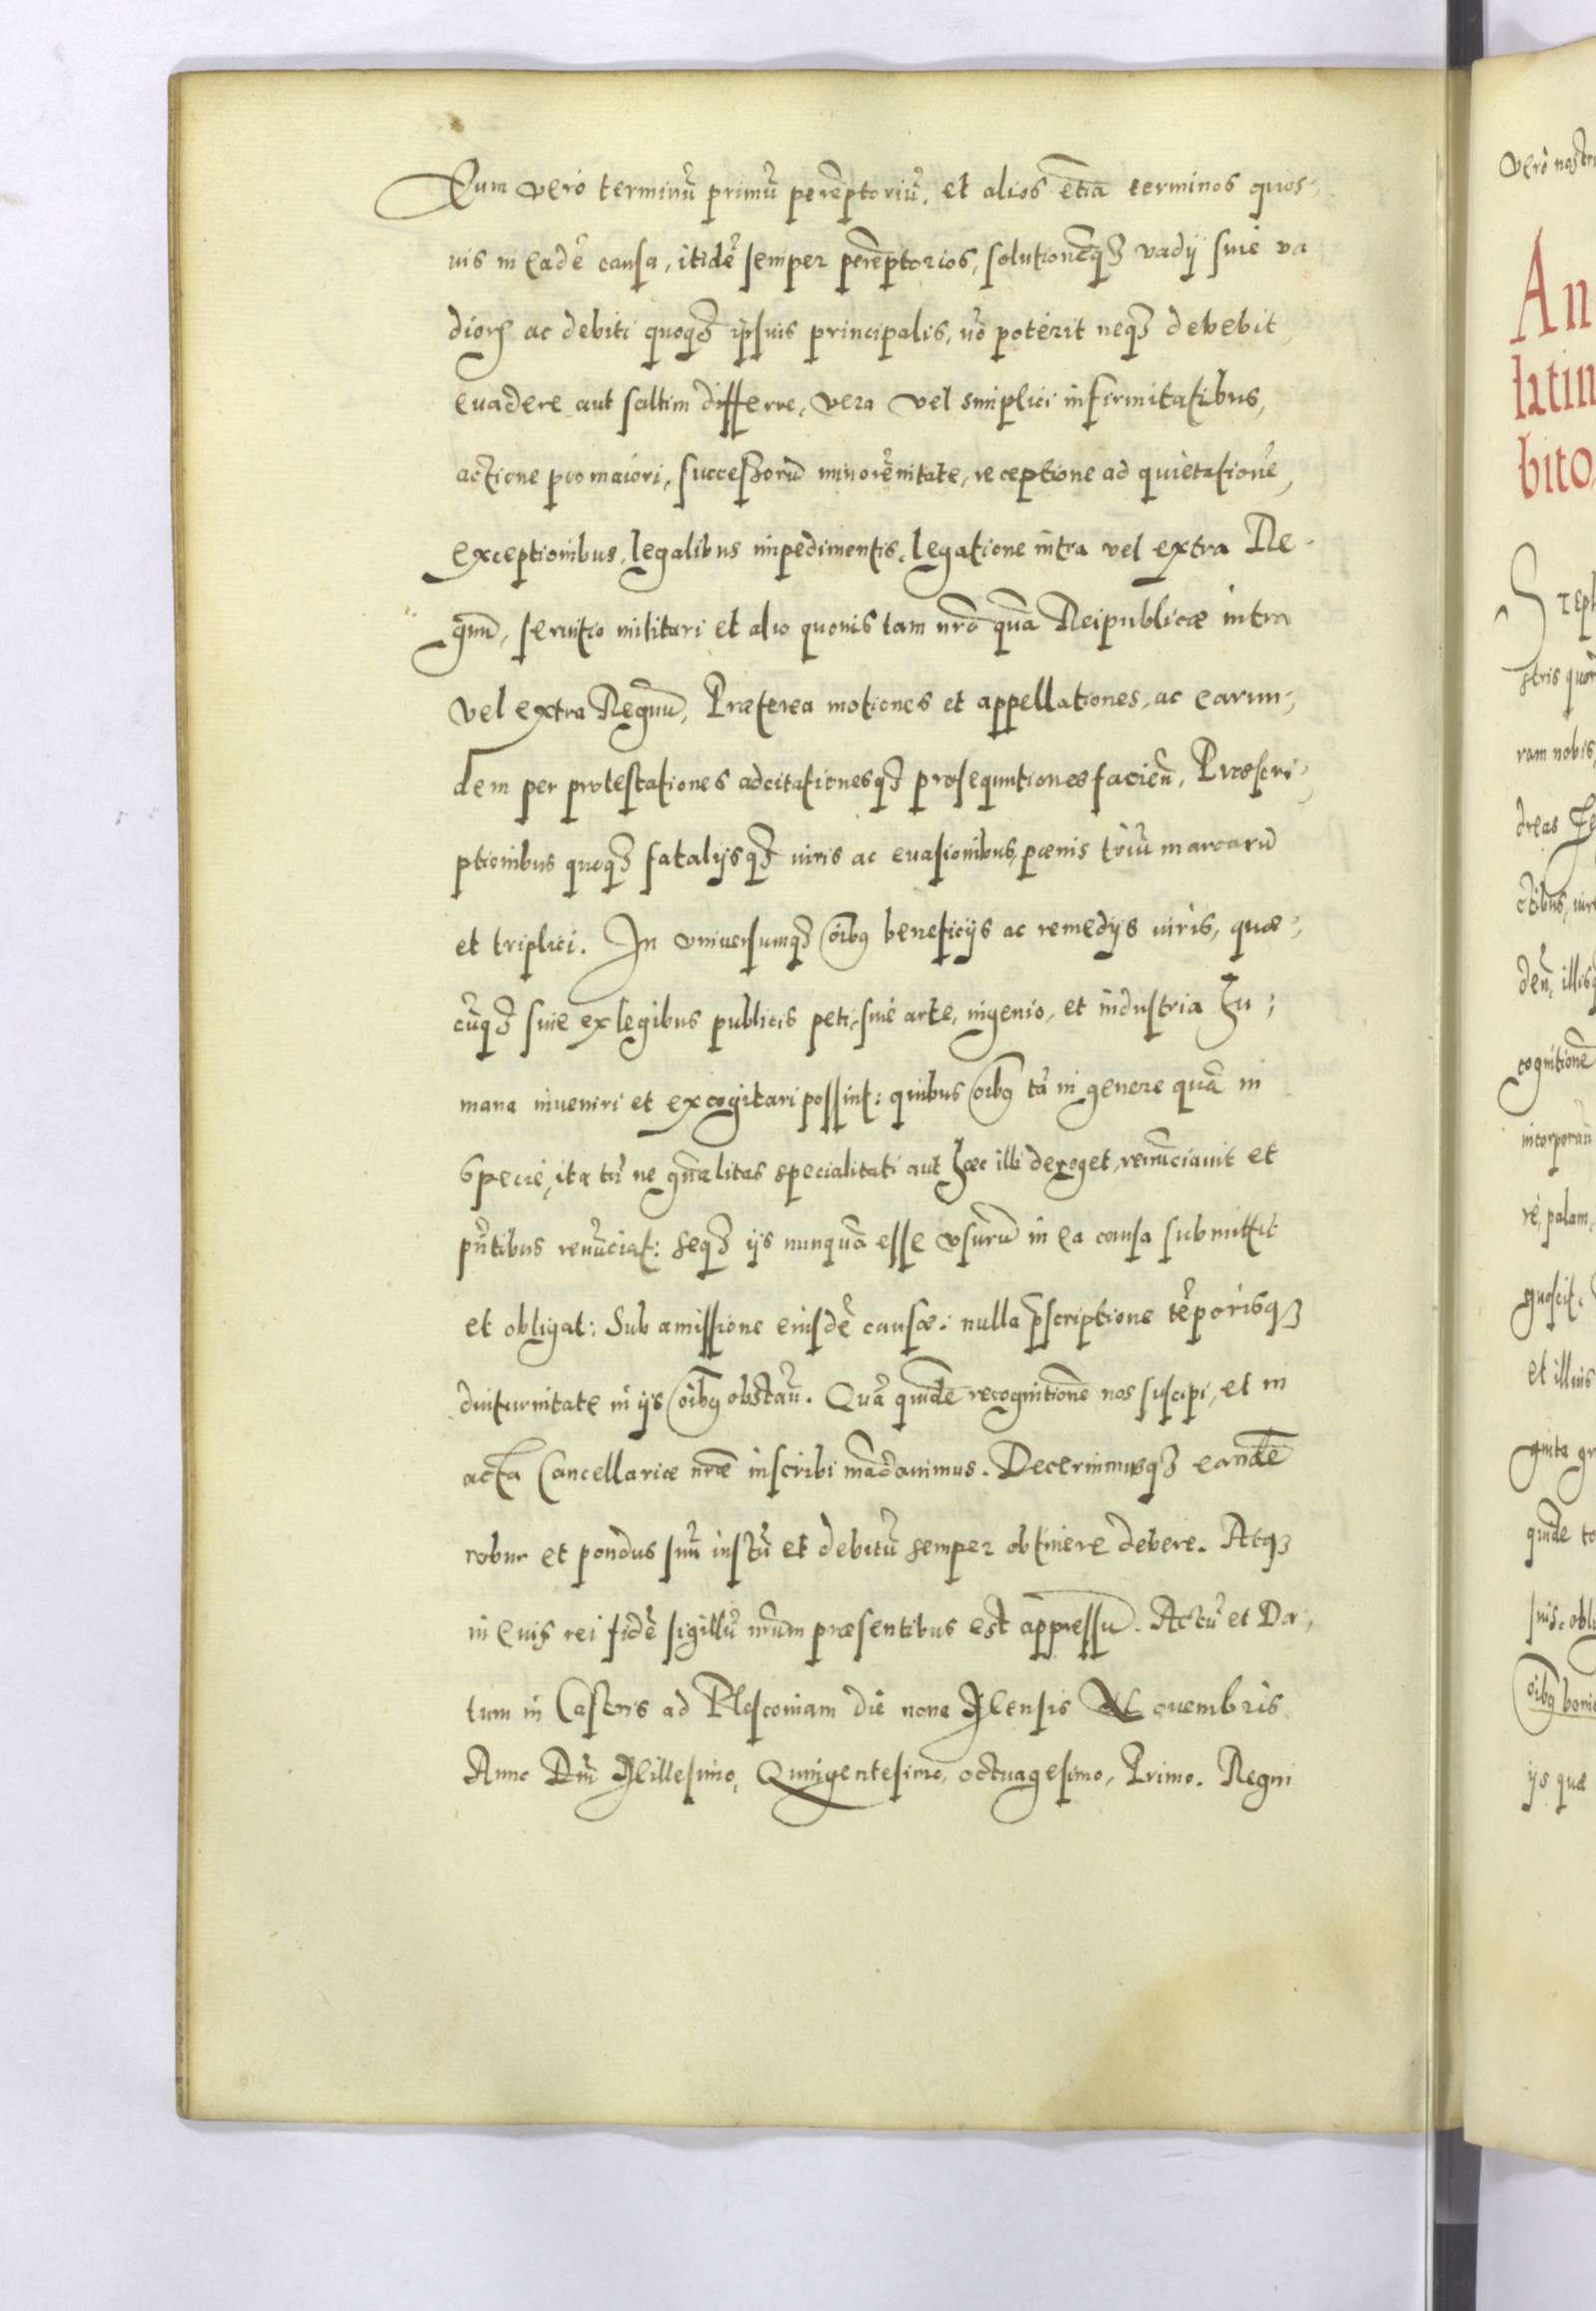 Eum vero terminū primū perēptoriū, et alios etiā terminos quos-
uis in eadē causa, itidē semper perēptorios, solutionēq₃ vadij siue va
dioꝝ ac debiti quoq₃ ipsius principalis, nō poterit neq₃ debebit,
euadere aut saltim differre, vera vel simplici infirmitatibus,
actione pro maiori, successorū minorēnitate, receptione ad quietationē,
exceptionibus, legalibus impedimentis, legatione intra vel extra Re-
gnū, seruitio militari et alio quouis tam nrō quā Reipublicæ intra
vel extra Regnū, Præterea motiones et appellationes, ac earun-
dem per protestationes adcitationesq₃ prosequutiones facien̄, Præscri-
ptionibus quoq₃ fatalijsq₃ iuris ac euasionibus, pœnis triū marcarū
et triplici. In vniuersumq₃ oībꝰ beneficijs ac remedijs iuris, quæ-
cūq₃ siue ex legibus publicis peti, siue arte, ingenio, et industria hu-
mana inueniri et excogitari possint: quibus oībꝰ tā in genere quā in
specie, ita tn̄ ne gn̄alitas specialitati aut hæc illi deroget, renūciauit et
pn̄tibus renūciat: seq₃ ijs nunquā esse vsurū in ea causa submittit
et obligat: Sub amissione eiusdē causæ: nulla p̄scriptione tēporisq₃
diuturnitate in ijs oībꝰ obstan̄. Quā quidē recognitionē nos suscipi, et in
acta Cancellariæ nr̄æ inscribi mādauimus. Decernimusq₃ eandē
robur et pondus suū iustū et debitū semper obtinere debere. Atq₃
in cuiꝰ rei fidē sigillū nrūm præsentibus est appressū. Actū et Da-
tum in Castris ad Plesconiam die nona Mensis Nouembris
Anno Dn̄i Millesimo, Quingentesimo, octuagesimo, Primo. Regni